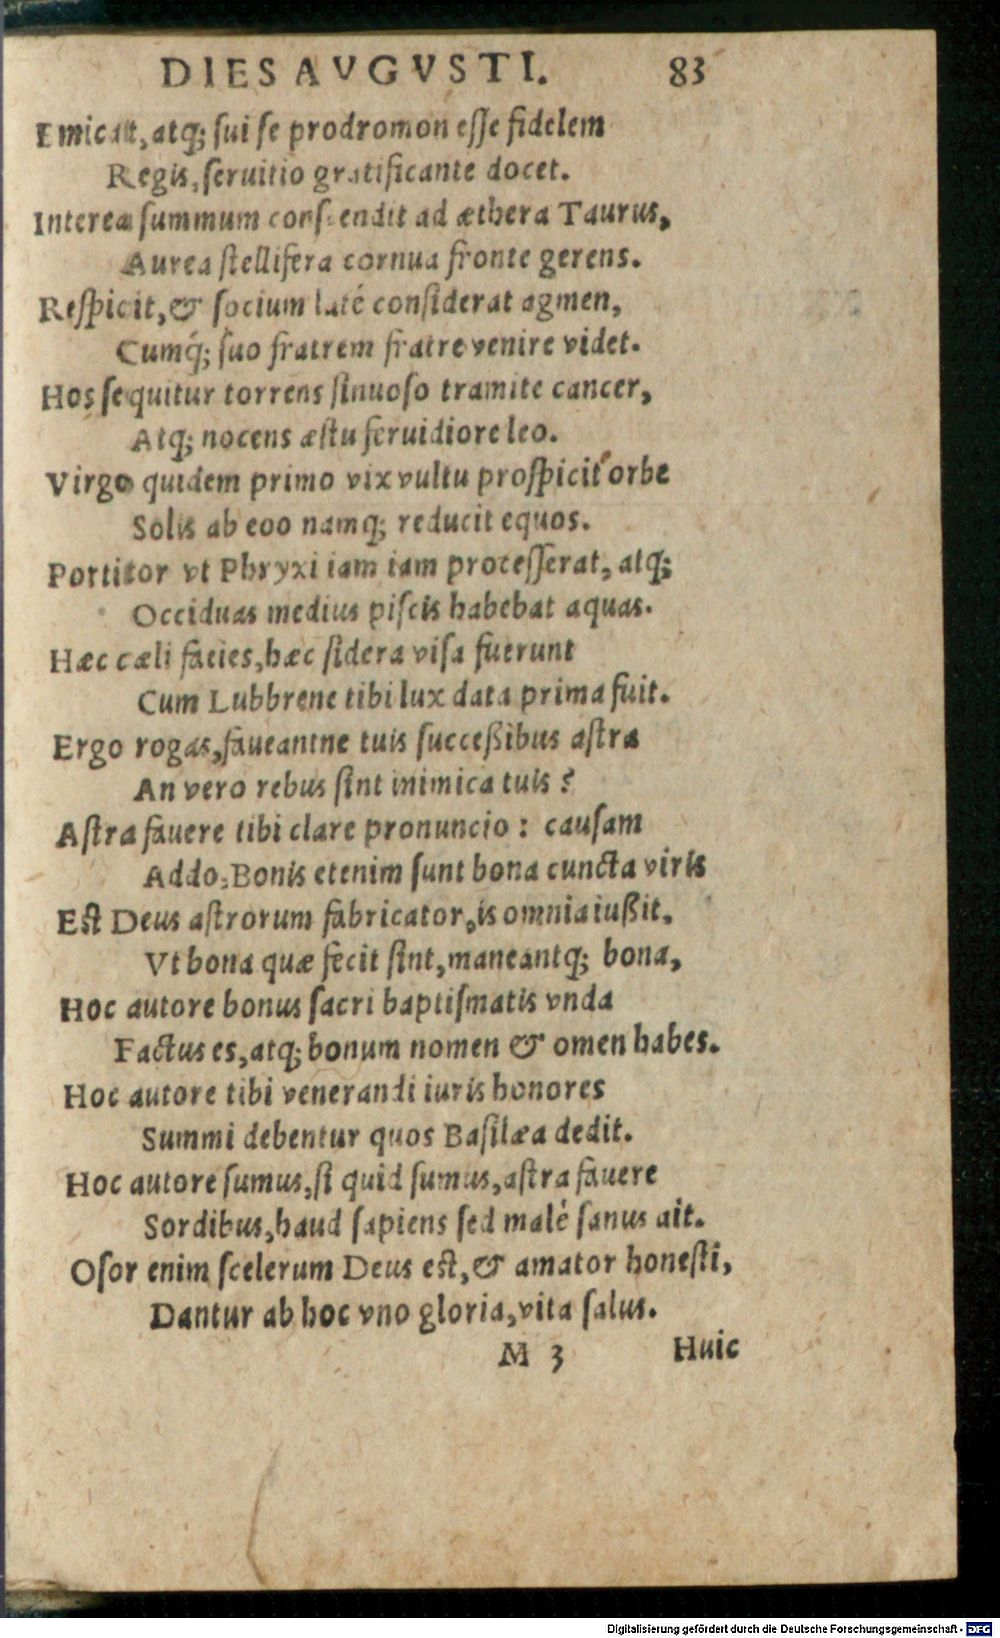 DIES AVGVSTI. 83
Emicat, atq; sui se prodromon esse fidelem
Regis, seruitio gratificante docet.
Interea summum conscendit ad æthera Taurus,
Aurea stellifera cornua fronte gerens.
Respicit, & socium laté considerat agmen,
Cumq́; suo fratrem fratre venire videt.
Hos sequitur torrens sinuoso tramite cancer,
Atq; nocens æstu feruidiore leo.
Virgo quidem primo vix vultu prospicit orbe
Solis ab eoo namq; reducit equos.
Portitor vt Phryxi iam iam processerat, atq;
Occiduas medius piscis habebat aquas.
Hæc cæli facies, hæc sidera visa fuerunt
Cum Lubbrene tibi lux data prima fuit.
Ergo rogas, faueantne tuis successibus astra
An vero rebus sint inimica tuis?
Astra fauere tibi clare pronuncio: causam
Addo, Bonis etenim sunt bona cuncta viris
Est Deus astrorum fabricator, is omnia iußit,
Vt bona quæ fecit sint, maneantq; bona,
Hoc autore bonus sacri baptismatis vnda
Factus es, atq; bonum nomen & omen habes.
Hoc autore tibi venerandi iuris honores
Summi debentur quos Basilæa dedit.
Hoc autore sumus, si quid sumus, astra fauere
Sordibus, haud sapiens sed malé sanus ait.
Osor enim scelerum Deus est, & amator honesti,
Dantur ab hoc vno gloria, vita salus.
M 3 Huic
Digitalisierung gefördert durch die Deutsche Forschungsgemeinschaft - DFG